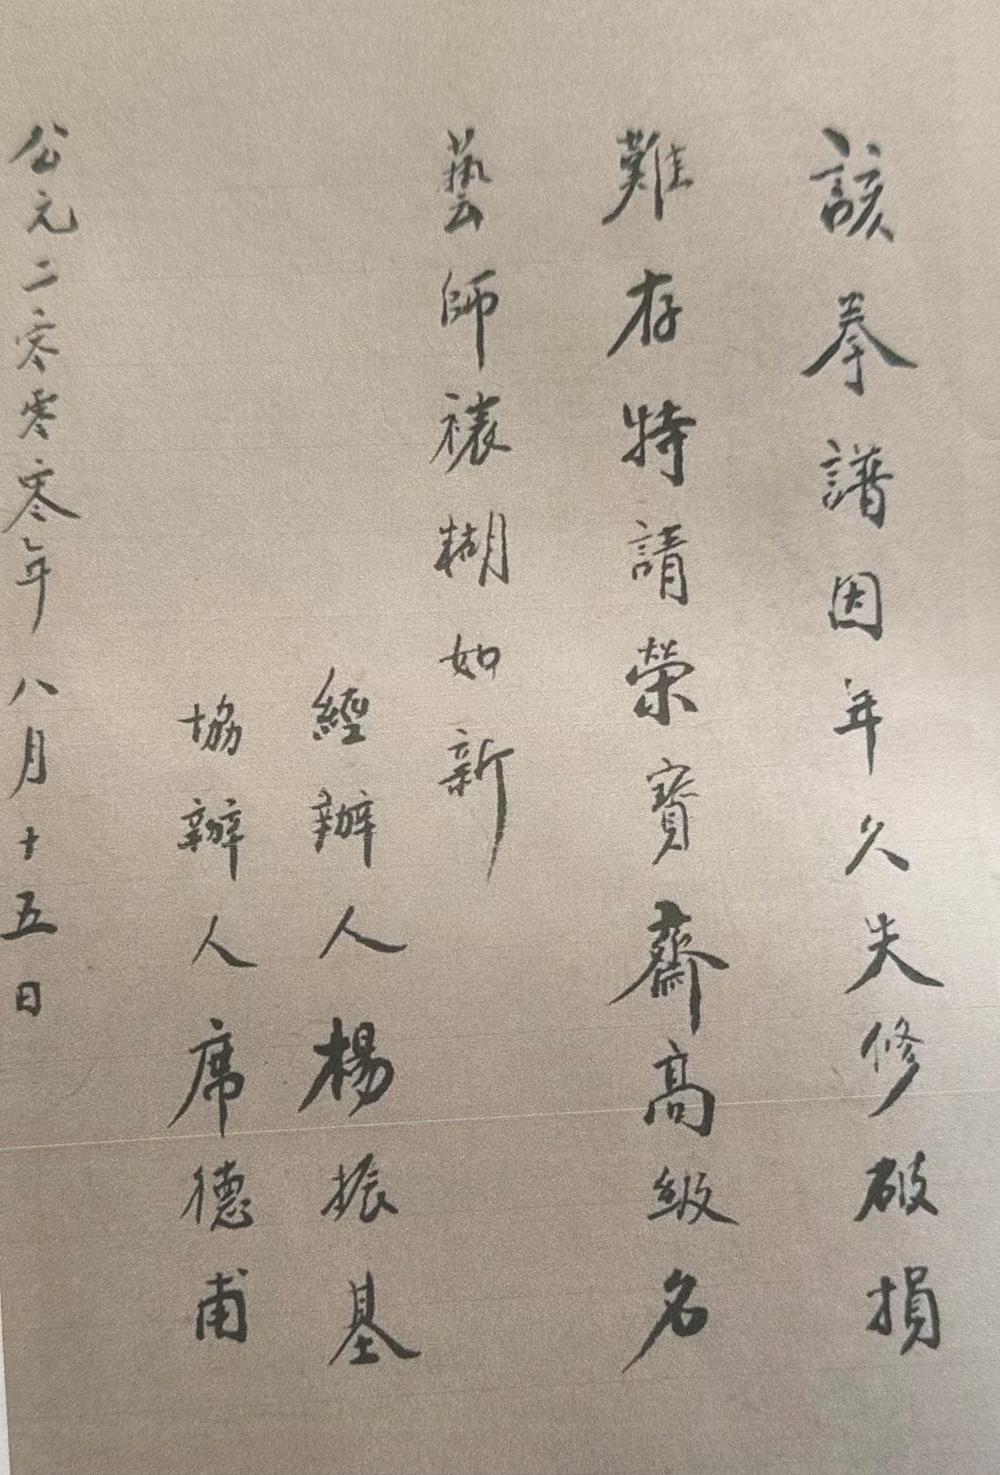 該拳譜因年久失修破損
難存特請榮寶齋高級名
藝師裱糊如新
經辦人楊振基
協辦人席德甫
公元二零零零年八月十五日